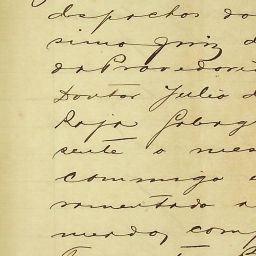 despachos do
simo Juiz d
da Provedoria
Doutor Julio d
Raja Gabag
sente o mes
commigo e
ramentado a
meado, com